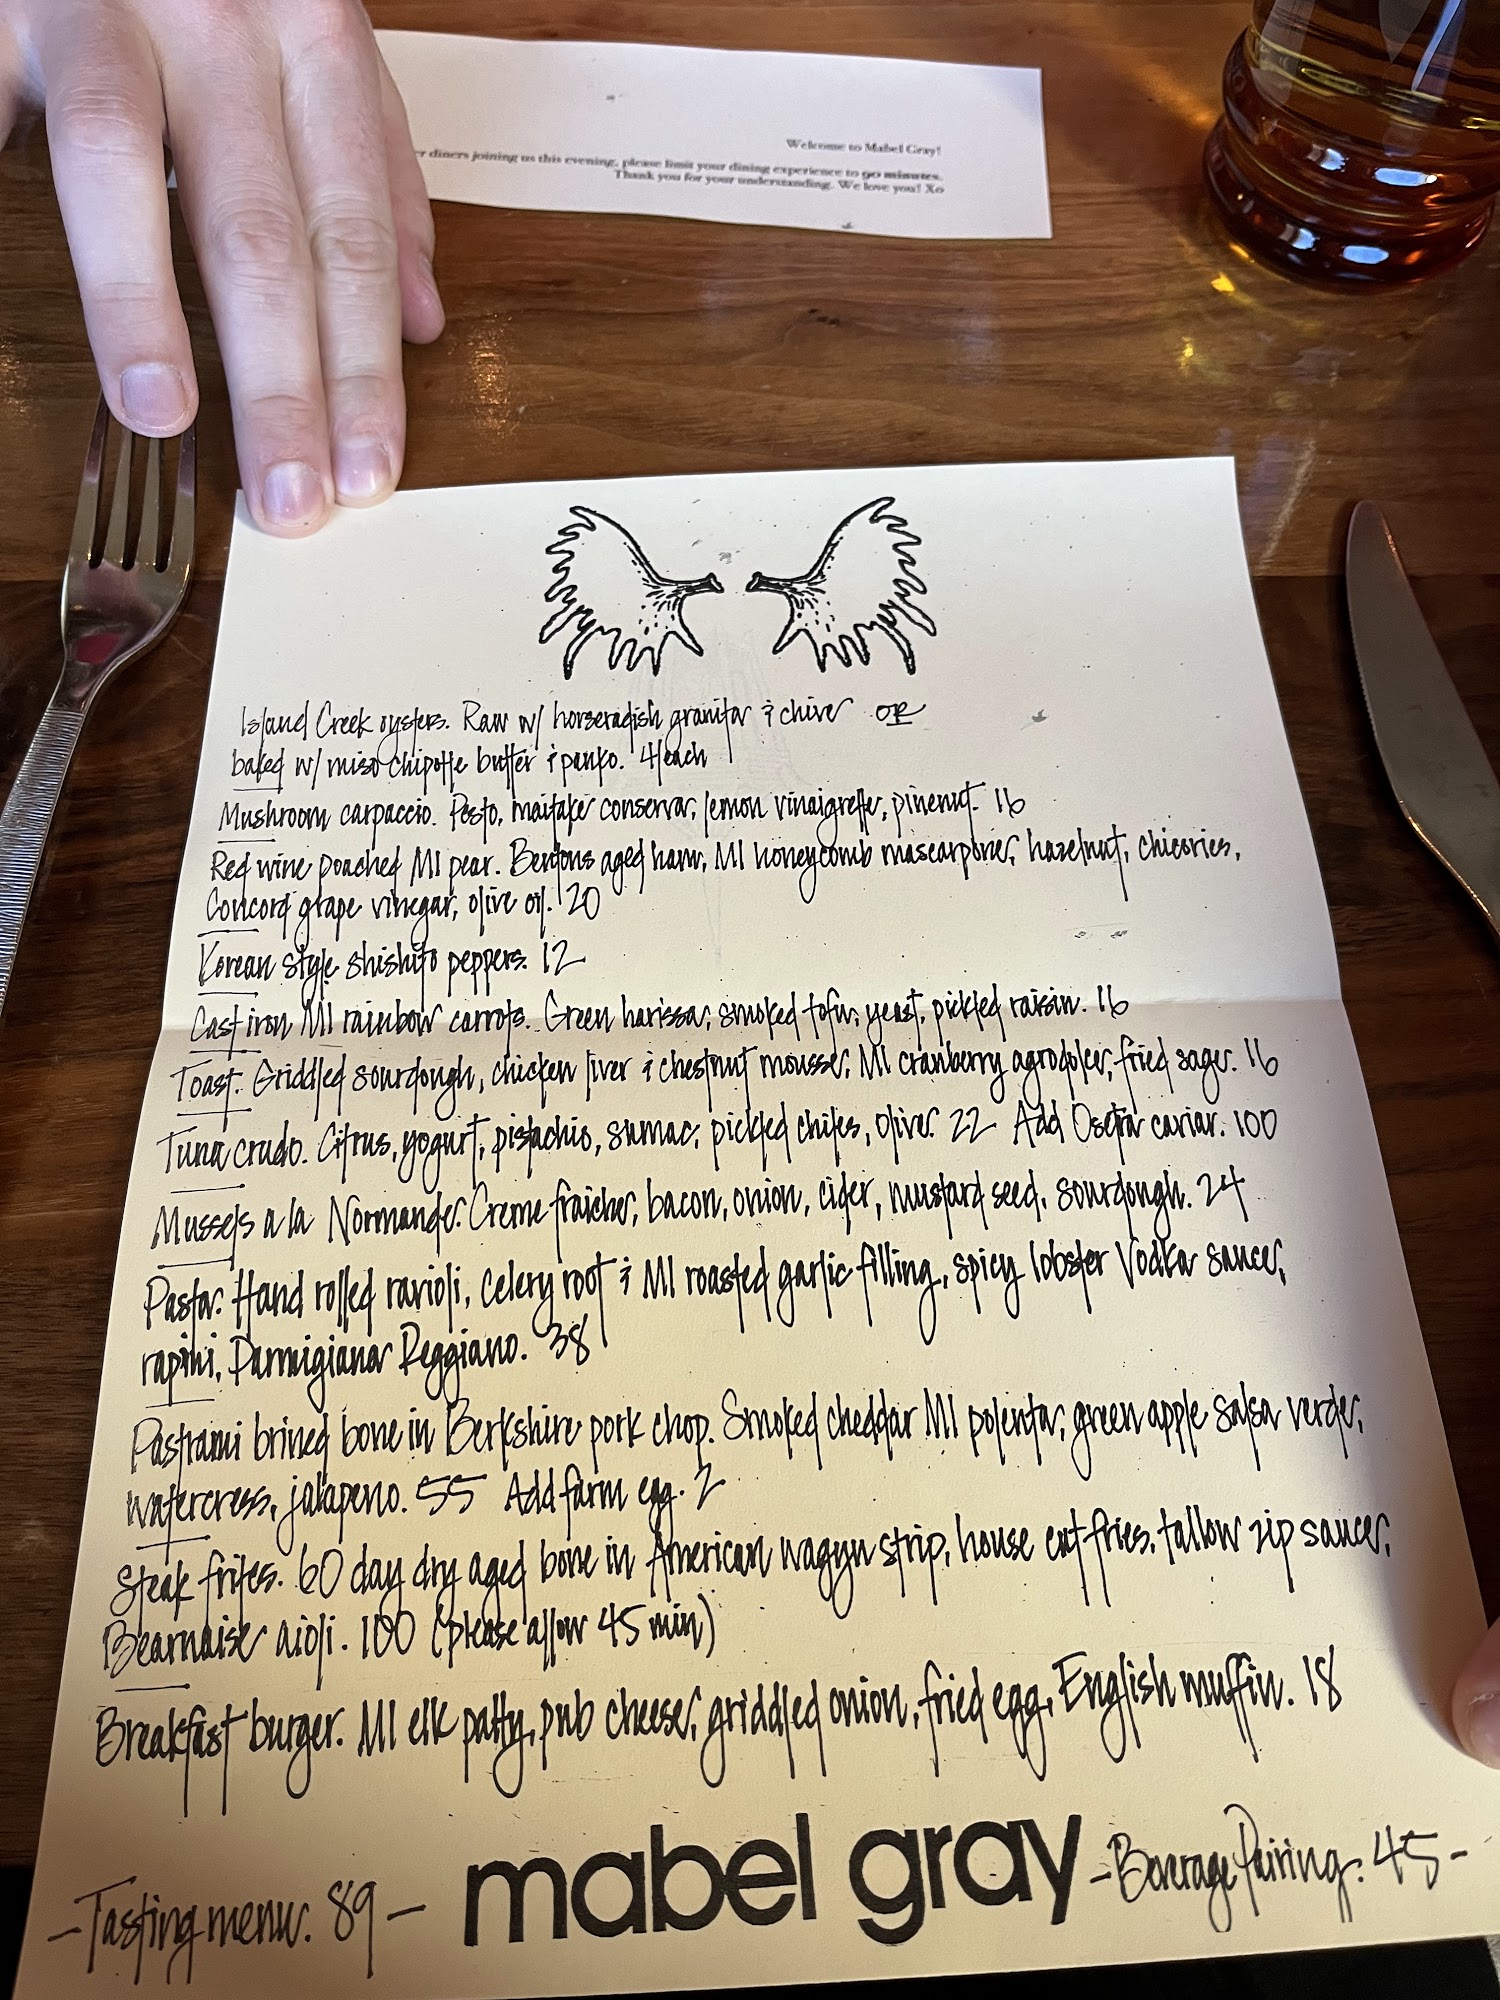 Welcome to Mabel Gray!
diners joining us this evening, please limit your dining experience to 90 minutes.
Thank you for your understanding. We love you! Xo
Island Creek oysters. Raw w/ horseradish granita & chive OR
baked w/ miso chipotle butter & panko. 4/each
Mushroom carpaccio. Pesto, maitake conserva, lemon vinaigrette, pinenut. 16
Red wine poached MI pear. Bentons aged ham, MI honeycomb mascarpone, hazelnut, chicories,
Concord grape vinegar, olive oil. 20
Korean style shishito peppers. 12
Cast iron MI rainbow carrots. Green harissa, smoked tofu, yeast, pickled raisin. 16
Toast. Griddled sourdough, chicken liver & chestnut mousse, MI cranberry agrodolce, fried sage. 16
Tuna crudo. Citrus, yogurt, pistachio, sumac, pickled chiles, olive. 22 Add Osetra caviar. 100
Mussels a la Normande. Creme fraiche, bacon, onion, cider, mustard seed, sourdough. 24
Pasta. Hand rolled ravioli, celery root & MI roasted garlic filling, spicy lobster Vodka sauce,
rapini, Parmigiana Reggiano. 38
Pastrami brined bone in Berkshire pork chop. Smoked cheddar MI polenta, green apple salsa verde,
watercress, jalapeno. 55 Add farm egg. 2
Steak frites. 60 day dry aged bone in American wagyu strip, house cut fries, tallow zip sauce,
Bearnaise aioli. 100 (please allow 45 min)
Breakfast burger. MI elk patty, pub cheese, griddled onion, fried egg, English muffin. 18
-Tasting menu. 89-
mabel gray
-Beverage Pairing. 45-